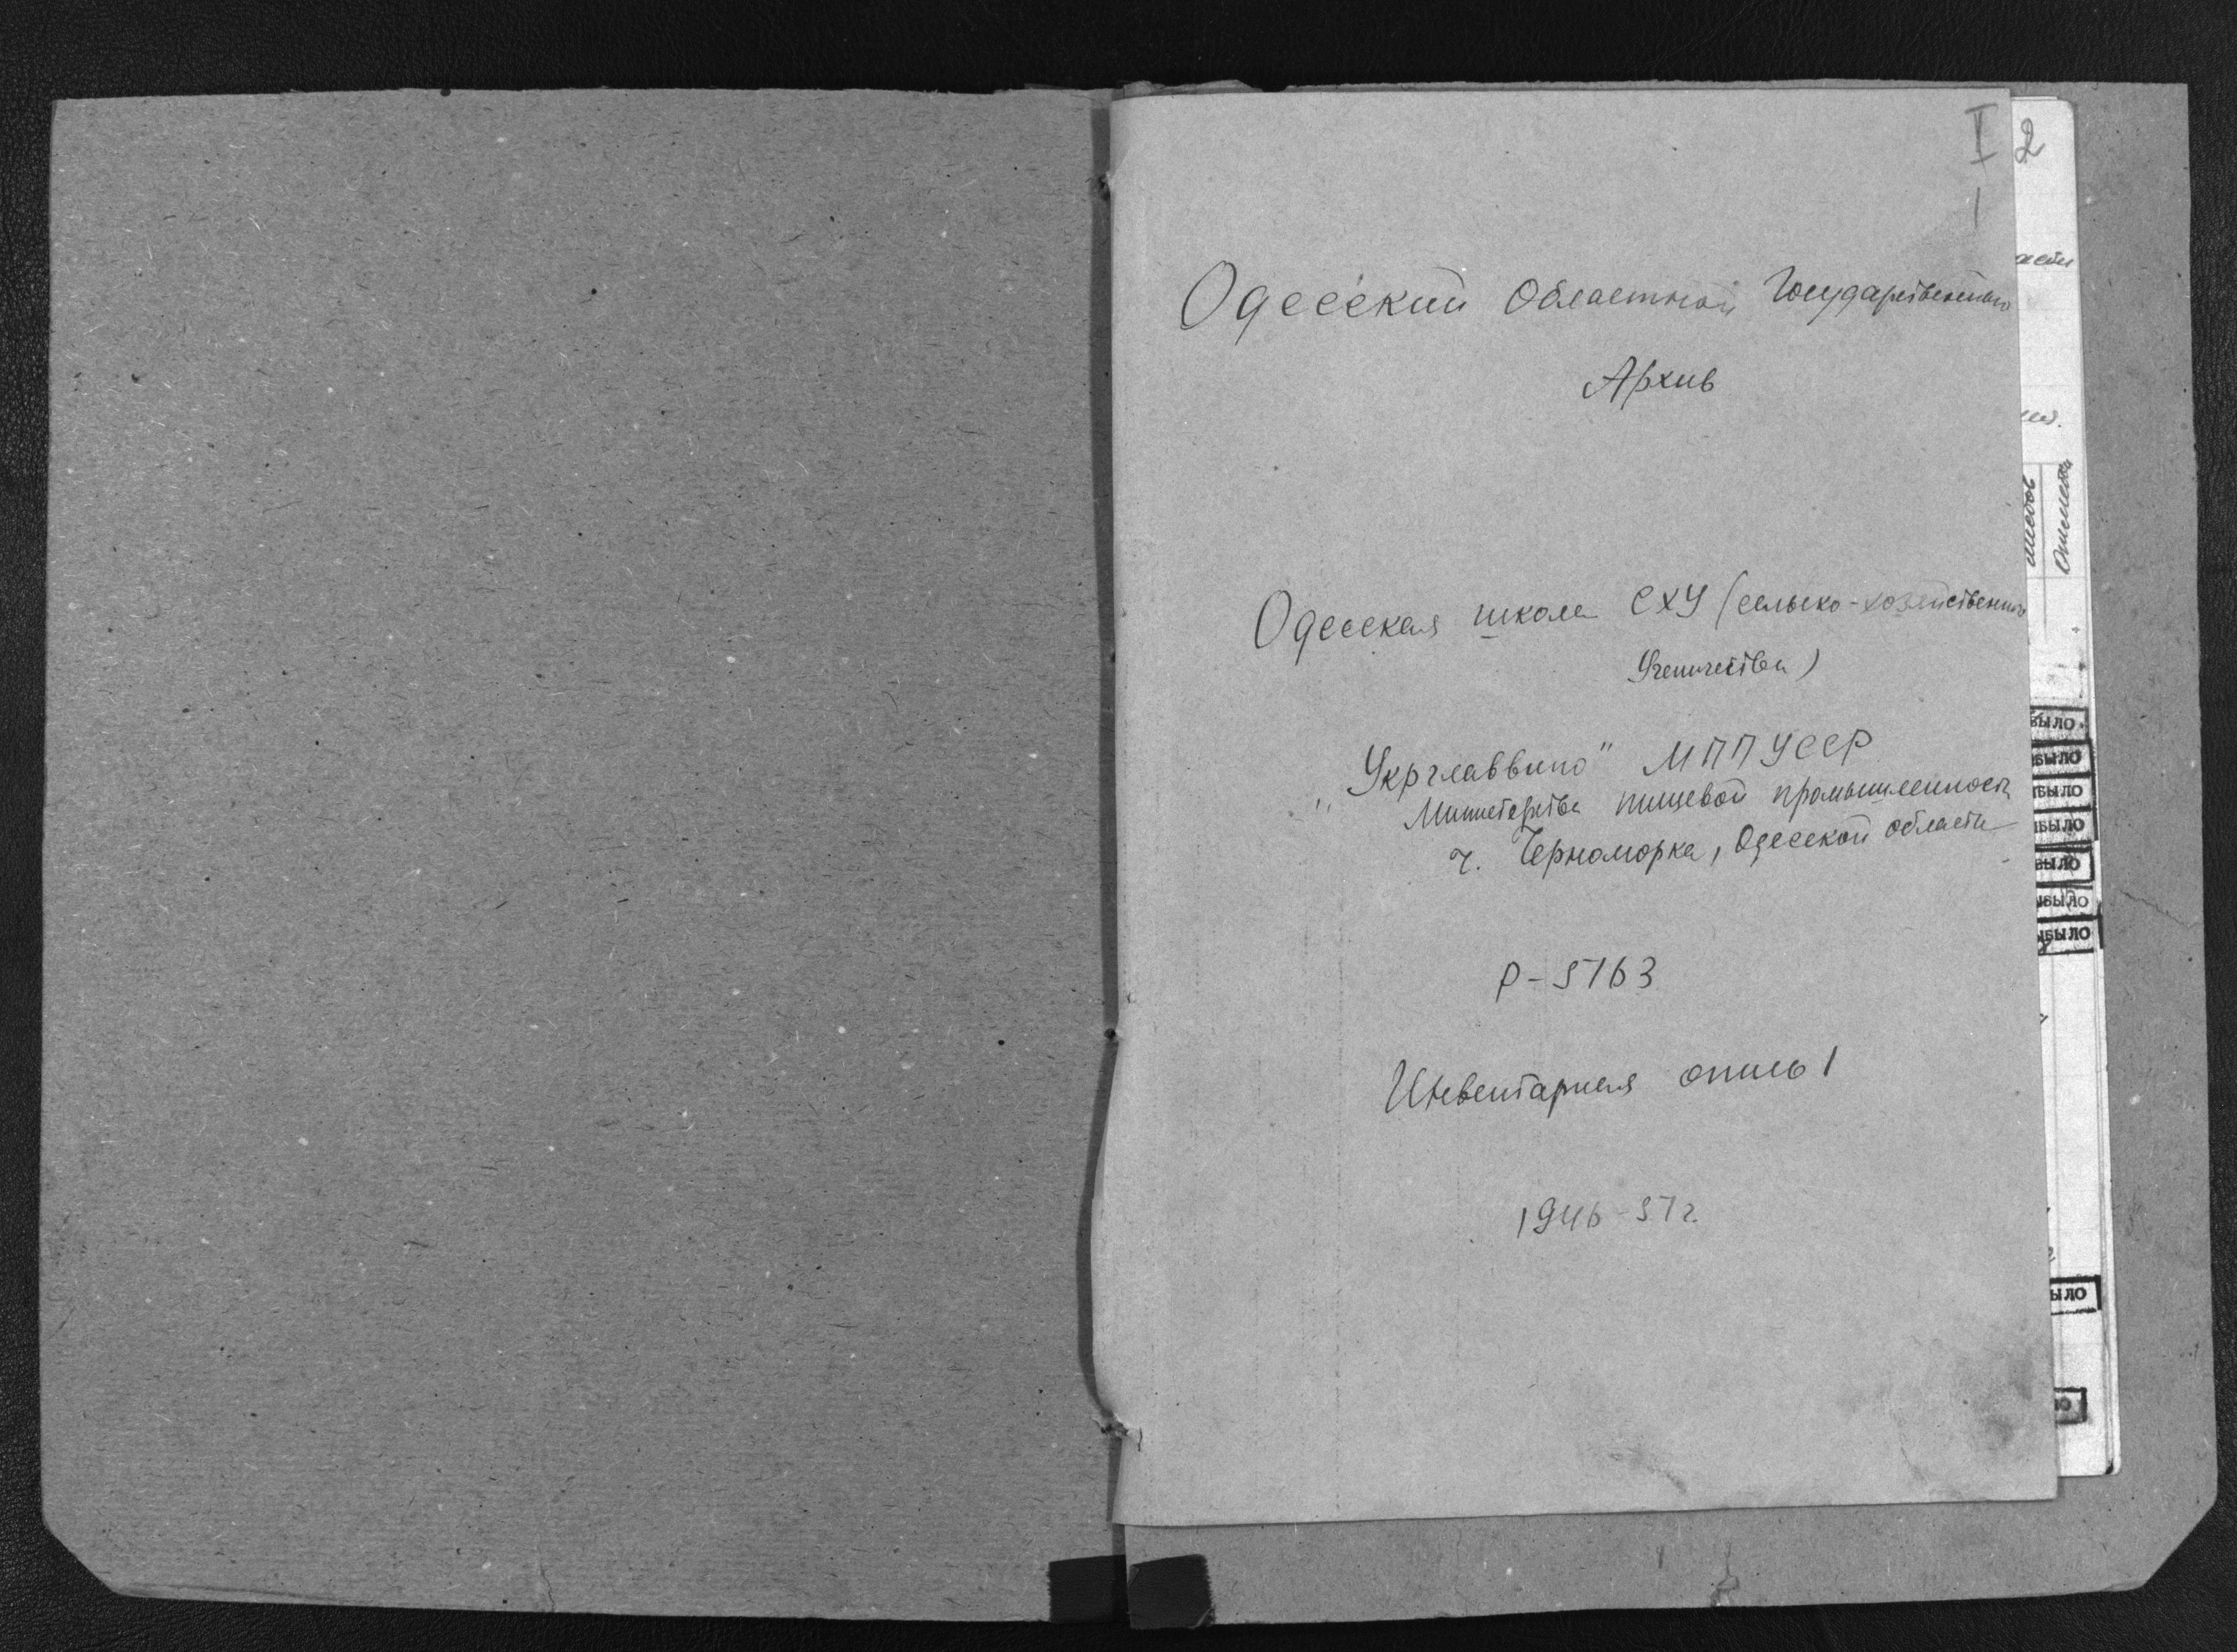 I 2
1
Одесский Областной Государственный
Архив
Одесская школа СХУ (сельско-хозяйственного
Ученичества)
"Укрглаввино" МППУССР
Министерства пищевой промышленности
г. Черноморка, Одесской области
Р-5163
Инвентарная опись 1
1946-51г.
ыбыло
ыбыло
ыбыло
ыбыло
было
ыбыло
ыбыло
ыло
ло